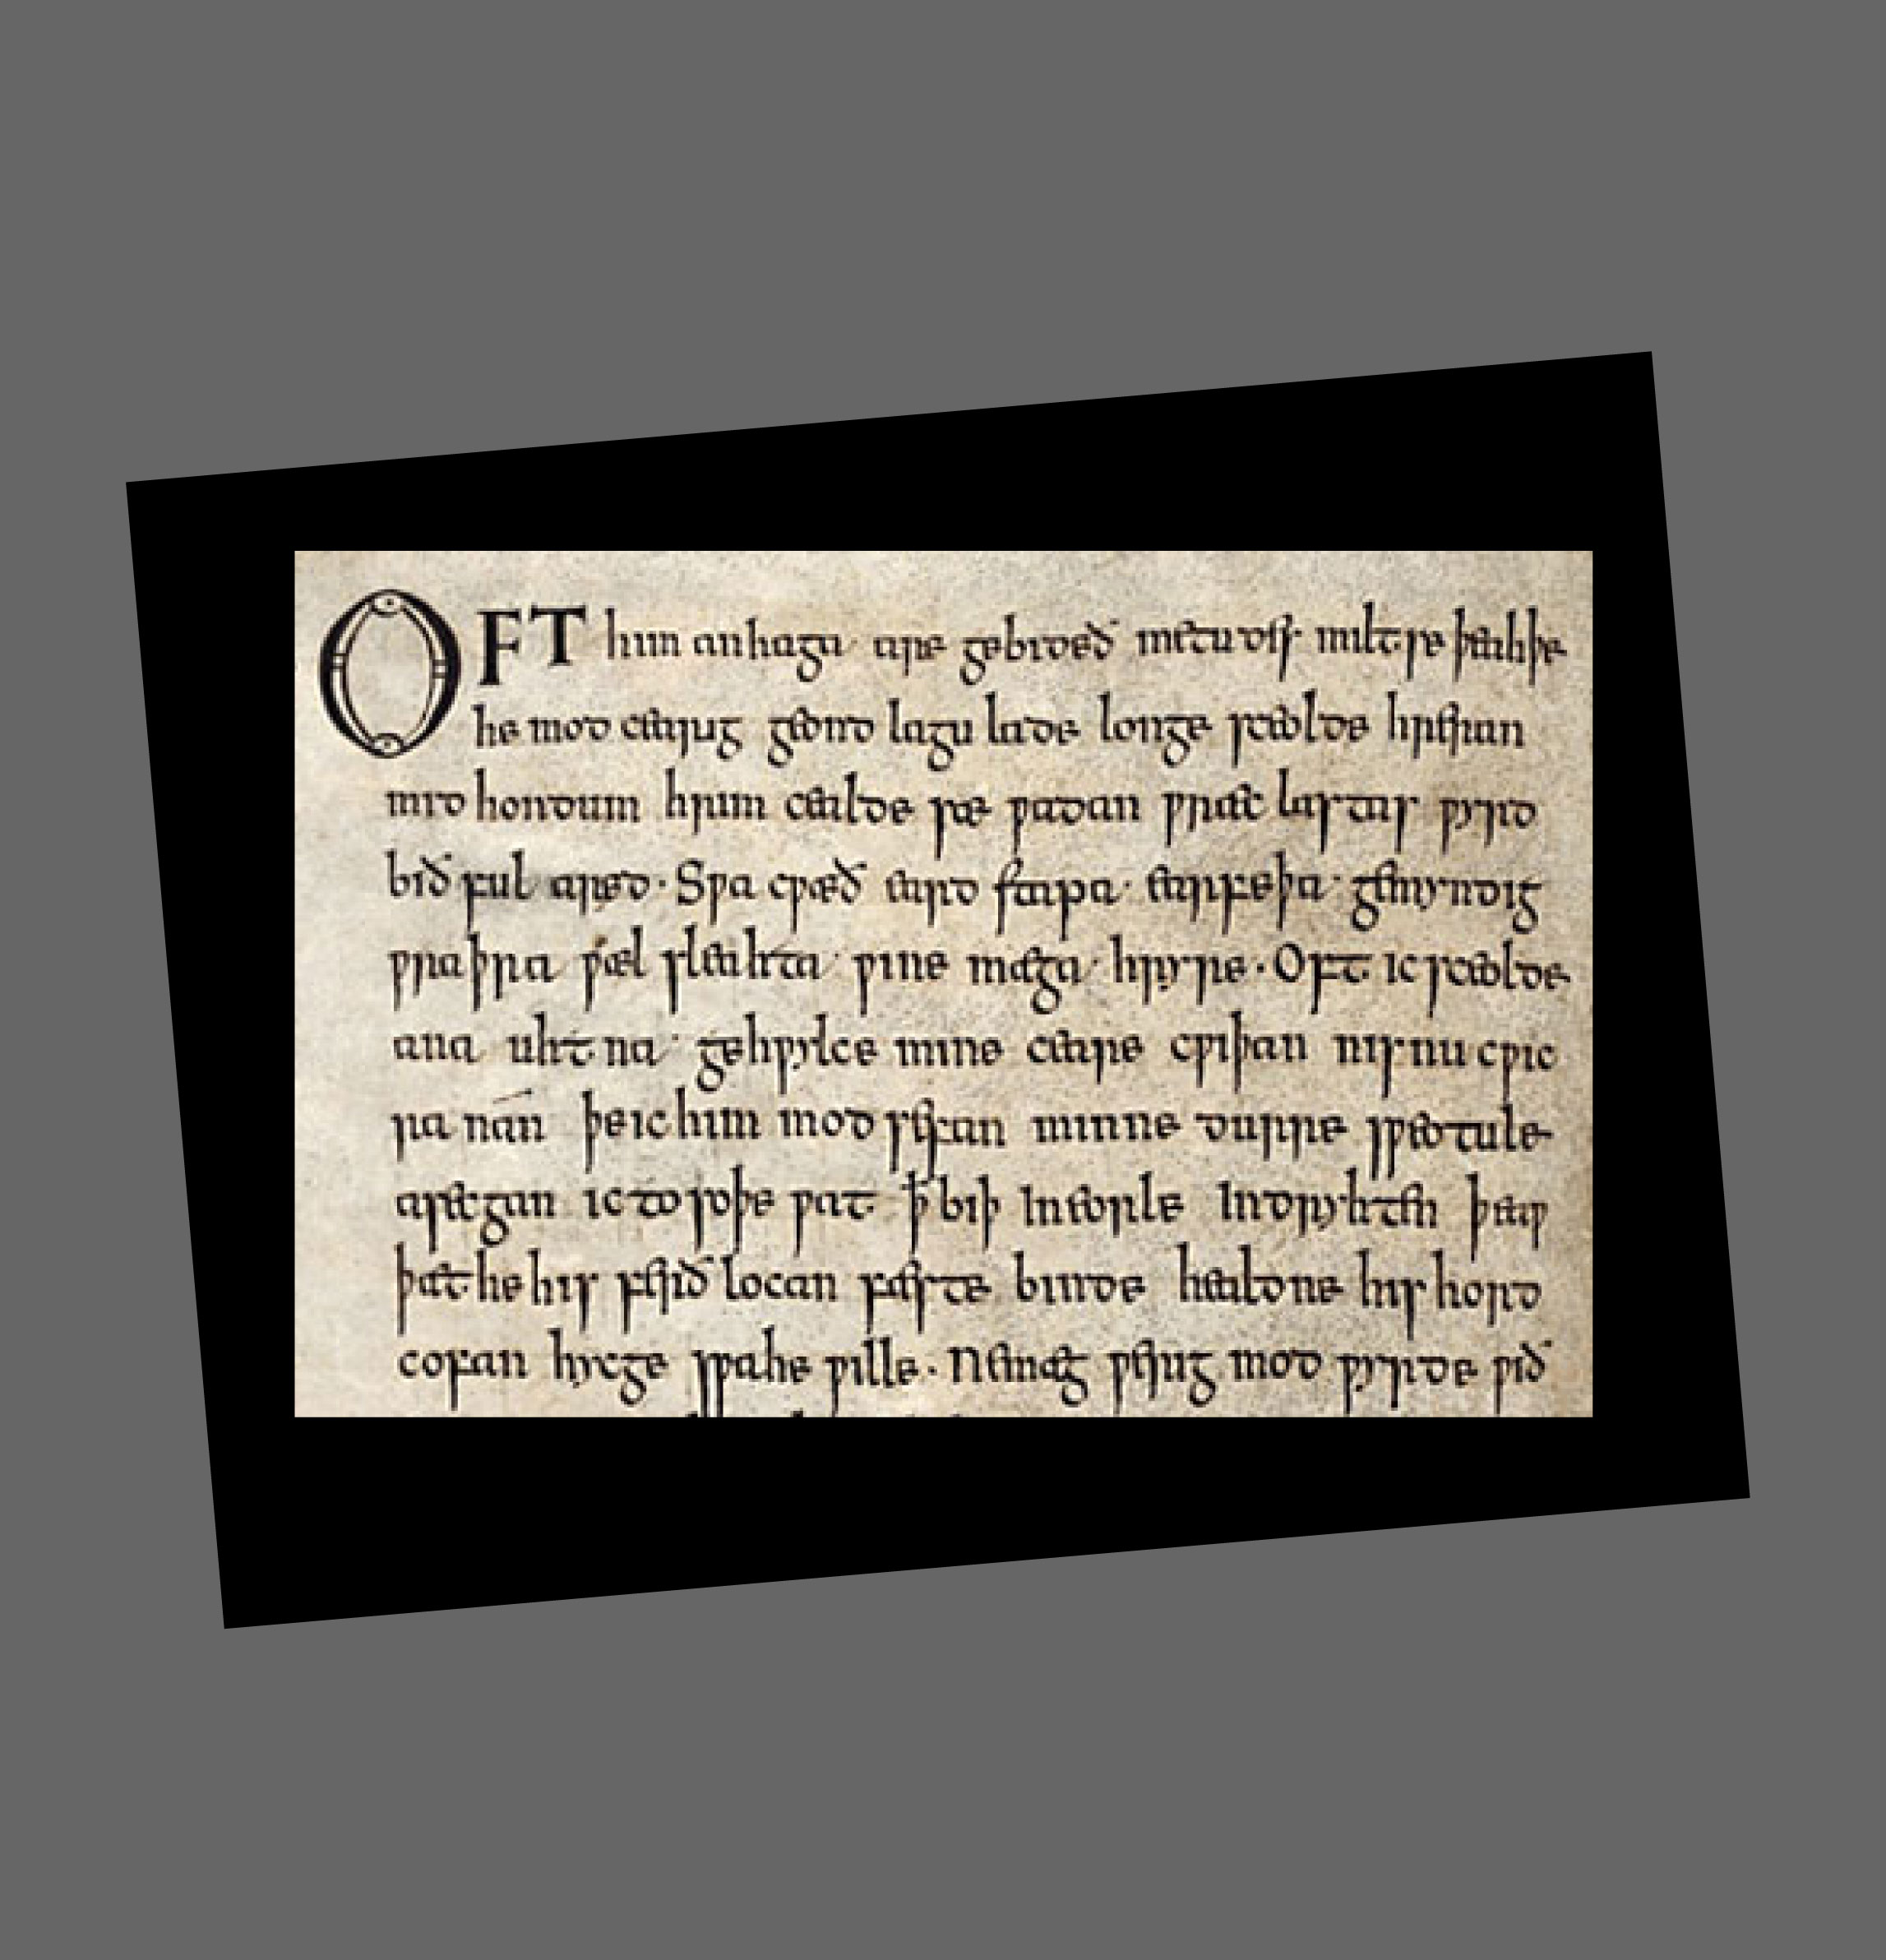 OFT him anhaga are gebideð metudes miltse þeahþe
he mod cearig geond lagu lade longe sceolde hreran
mid hondum hrim cealde sæ ƿadan ƿræc lastas ƿyrd
bið ful aræd · Sƿa cƿæð eard stapa earfeþa gemyndig
ƿraþra ƿæl sleahta ƿine mæga hryre · Oft ic sceolde
ana uhtna gehƿylce mine ceare cƿiþan nis nu cƿic
ra nán þe ic him mod sefan minne durre sƿeotule
asecgan ic to soþe ƿat ꝥ biþ In eorle Indryhten þeaƿ
þæt he his ferð locan fæste binde healdne his hord
cofan hycge sƿa he ƿille · Ne mæg ƿerig mod ƿyrde ƿið